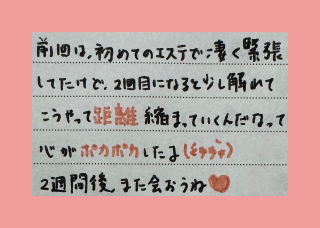 前回は、初めてのエステで凄く緊張
してたけど、2回目になると少し解れて
こうやって距離縮まっていくんだなって
心がポカポカしたよ
2週間後、また会おうね